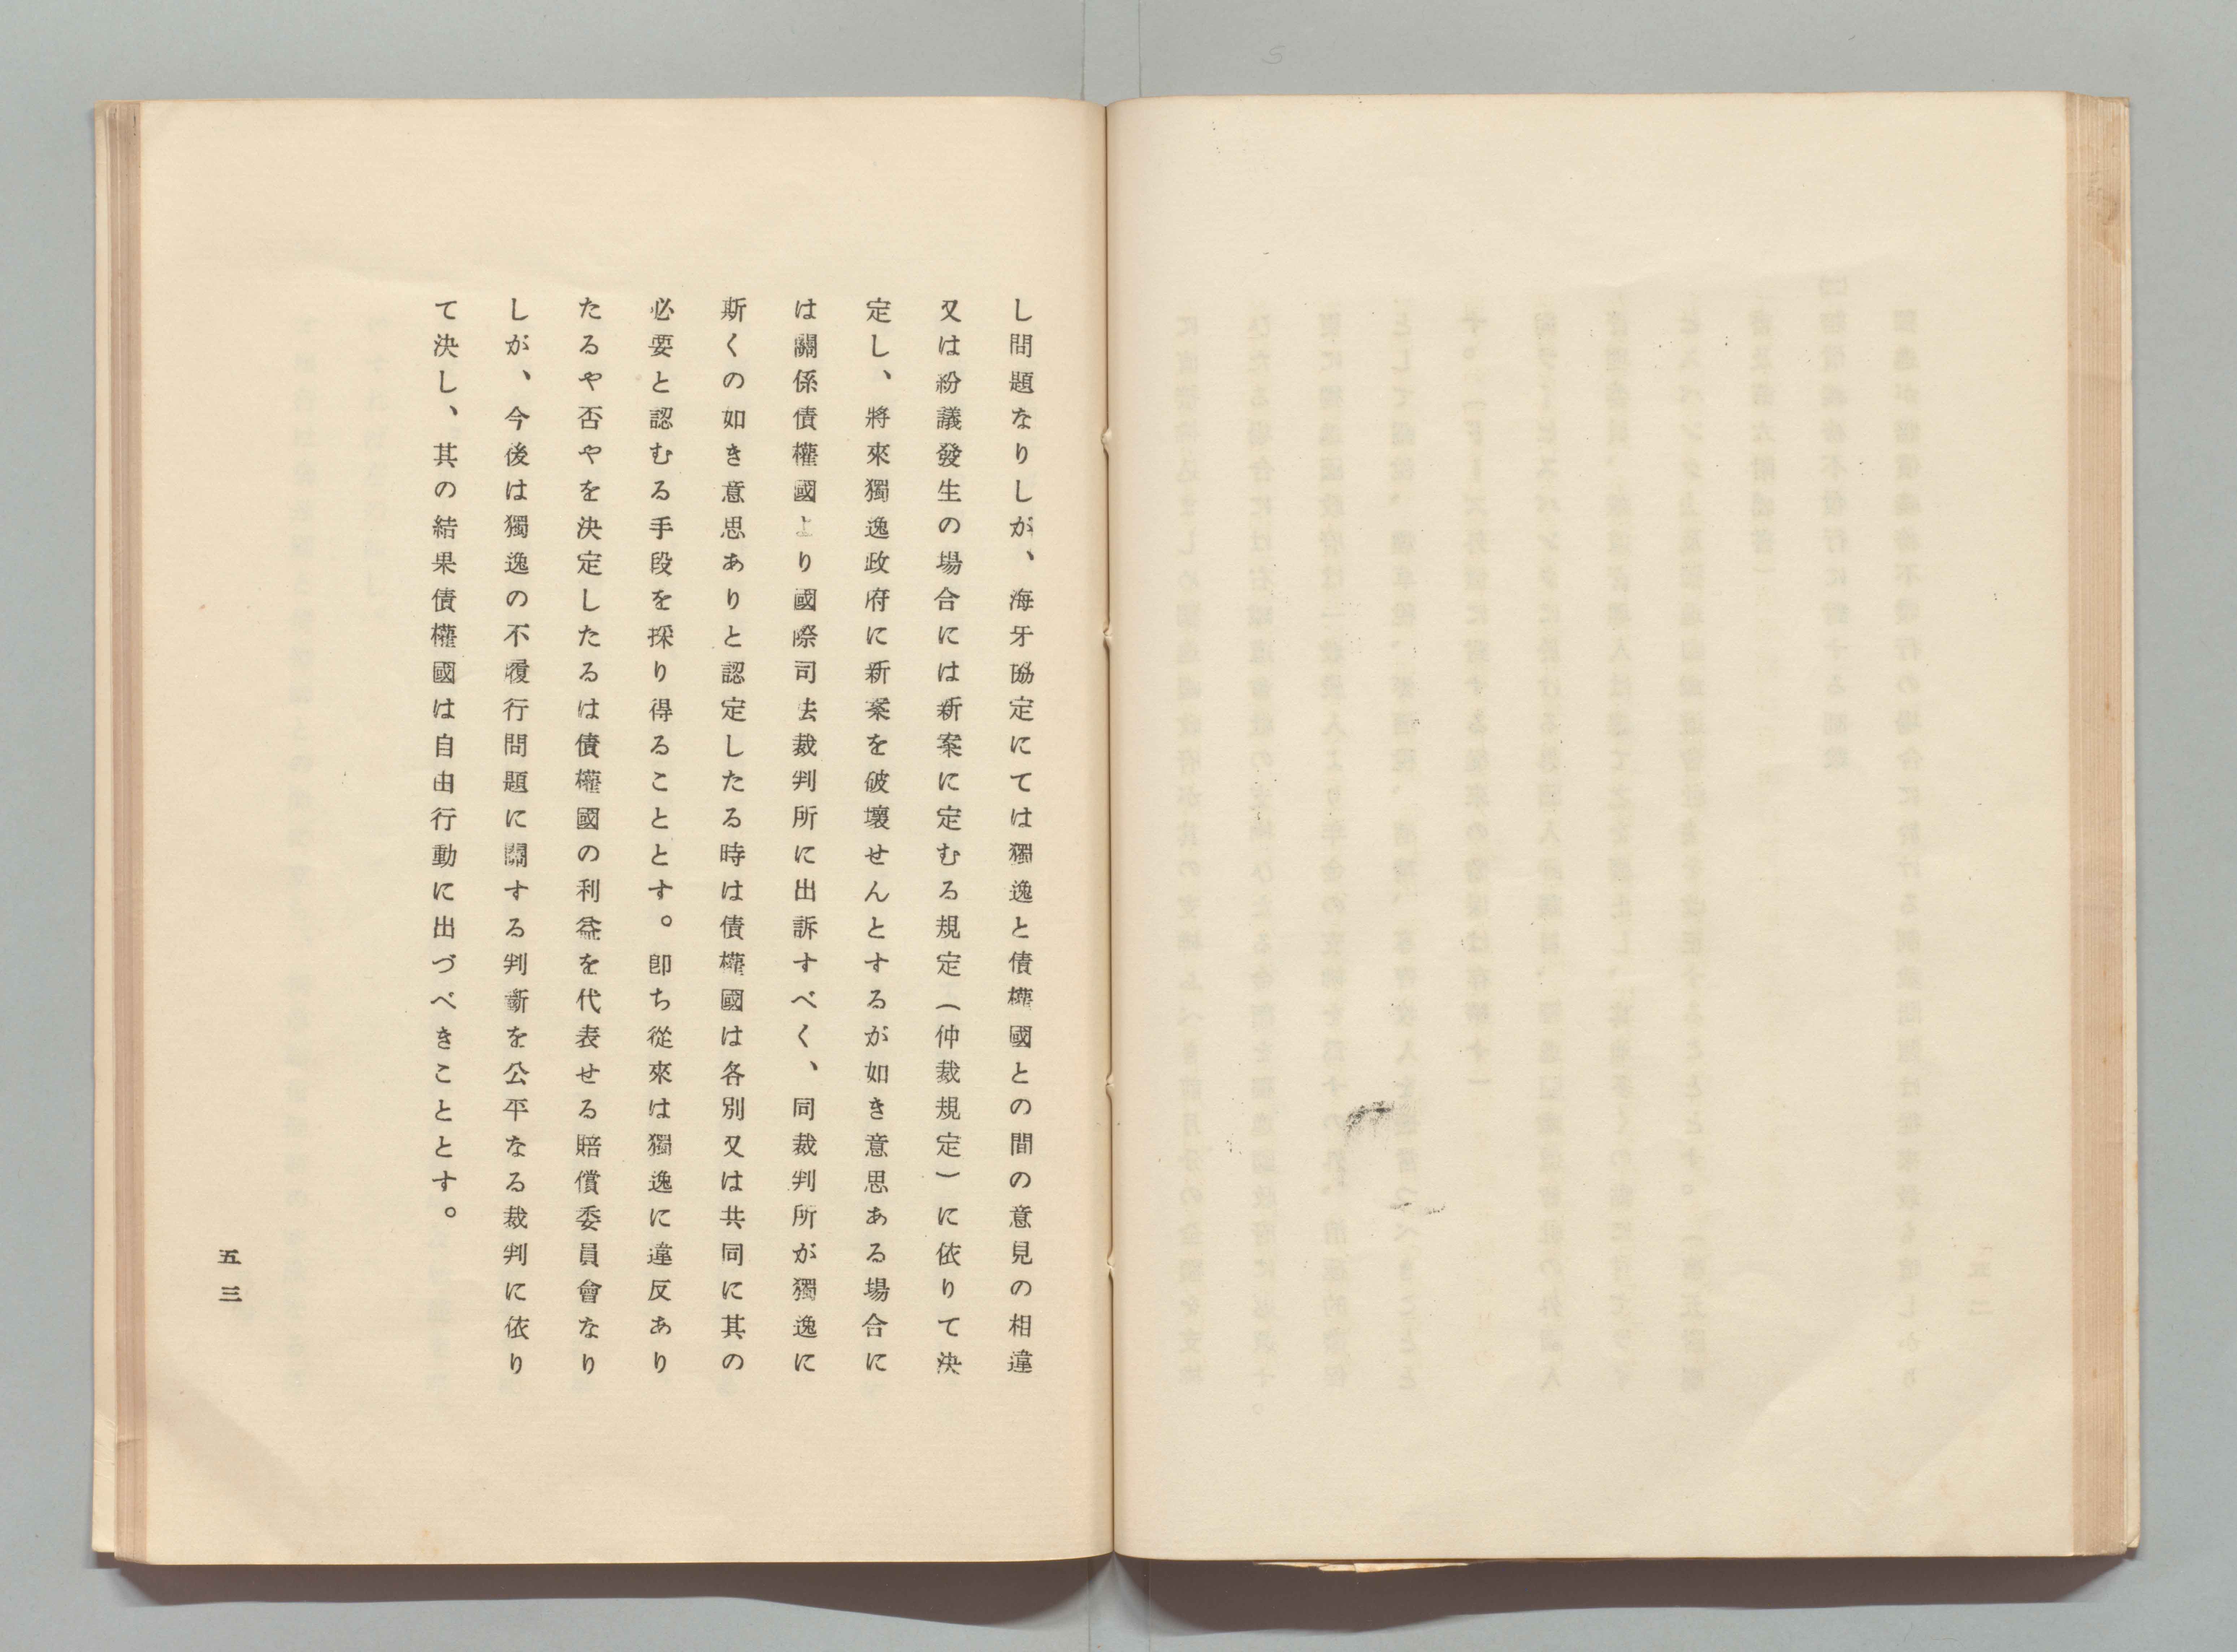 し問題なりしが、海牙協定にては獨逸と債權國との間の意見の相違
又は紛議發生の場合には新案に定むる規定(仲裁規定)に依りて決
定し、將來獨逸政府に新案を破壞せんとするが如き意思ある場合に
は關係債權國より國際司法裁判所に出訴すべく、同裁判所が獨逸に
斯くの如き意思ありと認定したる時は債權國は各別又は共同に其の
必要と認むる手段を採り得ることとす。卽ち從來は獨逸に違反あり
たるや否やを決定したるは債權國の利益を代表せる賠償委員會なり
しが、今後は獨逸の不履行問題に關する判斷を公平なる裁判に依り
て決し、其の結果債權國は自由行動に出づべきこととす。
五三